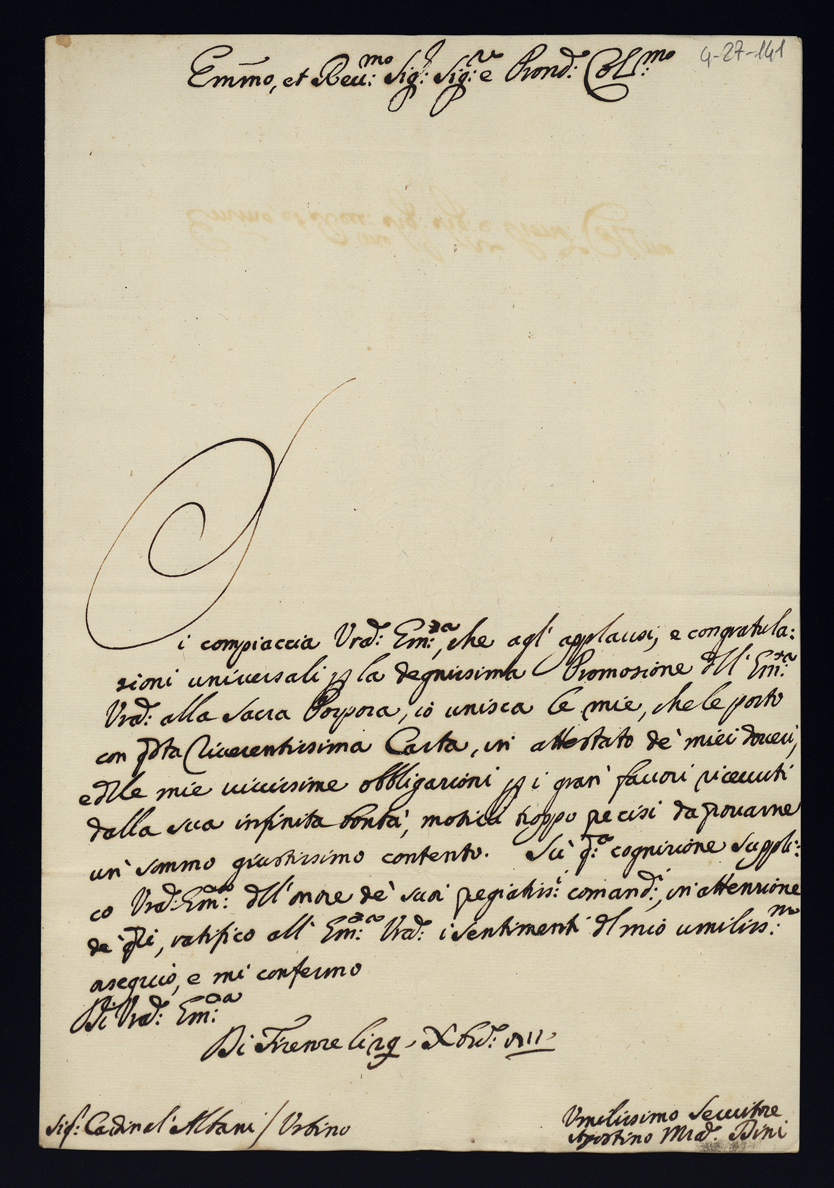 4-27-141
Emmo, et Reu:mo Sig: Sig:re e Prond: Col:mo
Si compiaccia Vrã: Em:za, che agl' applausi, e congratula:
zioni universali p la degnissima Promozione dll' Em:za
Vrã: alla Sacra Porpora, io unisca le mie, che le porto
con qsta riverentissima Carta, in attestato de' miei doveri,
e dlle mie vivissime obbligazioni p i gran' favori ricevuti
dalla sua infinita bontà, motivi troppo precisi da provarne
un' sommo giustissimo contento. Sù qta cognizione suppli:
co Vrã: Em:za dll' onore de' suoi pregiatiss:i comandi, in attenzione
de' qli, ratifico all' Em:za Vrã: i sentimenti dl mio umiliss:mo
ossequio, e mi confermo
Di Vrã: Em:za
Di Firenze li 29 Xbre: 1711
Sig: Cardinal' Albani / Urbino
Umilissimo Servitore
Agostino Mã: Bini